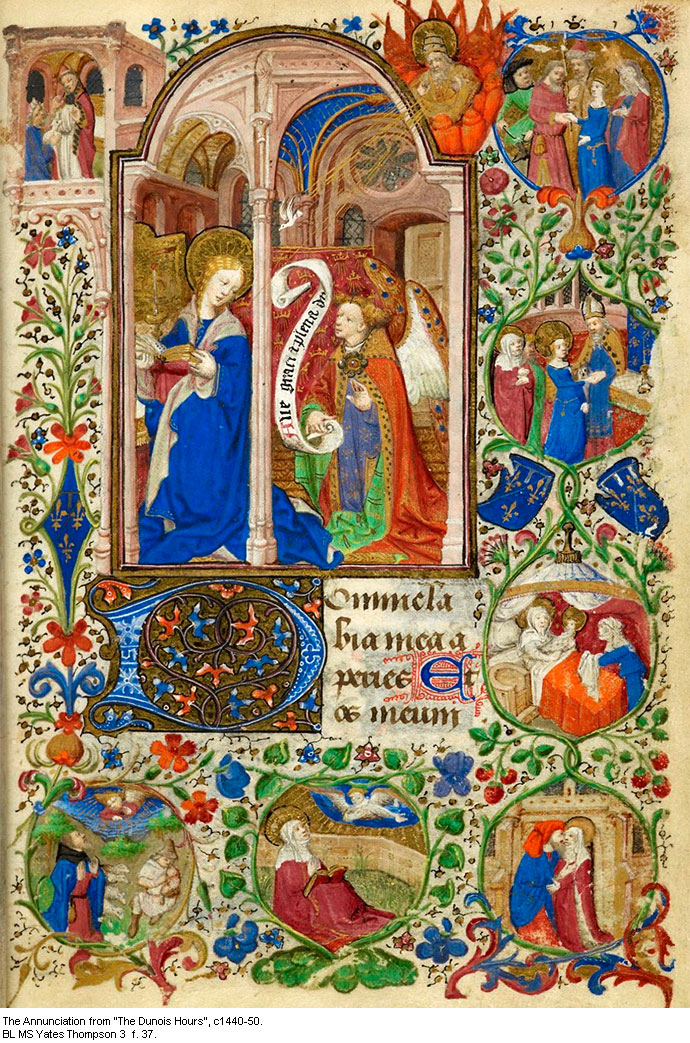 Aue gracia plena do
Domine la
bia mea a
peries Et
os meum
The Annunciation from "The Dunois Hours", c1440-50.
BL MS Yates Thompson 3  f. 37.